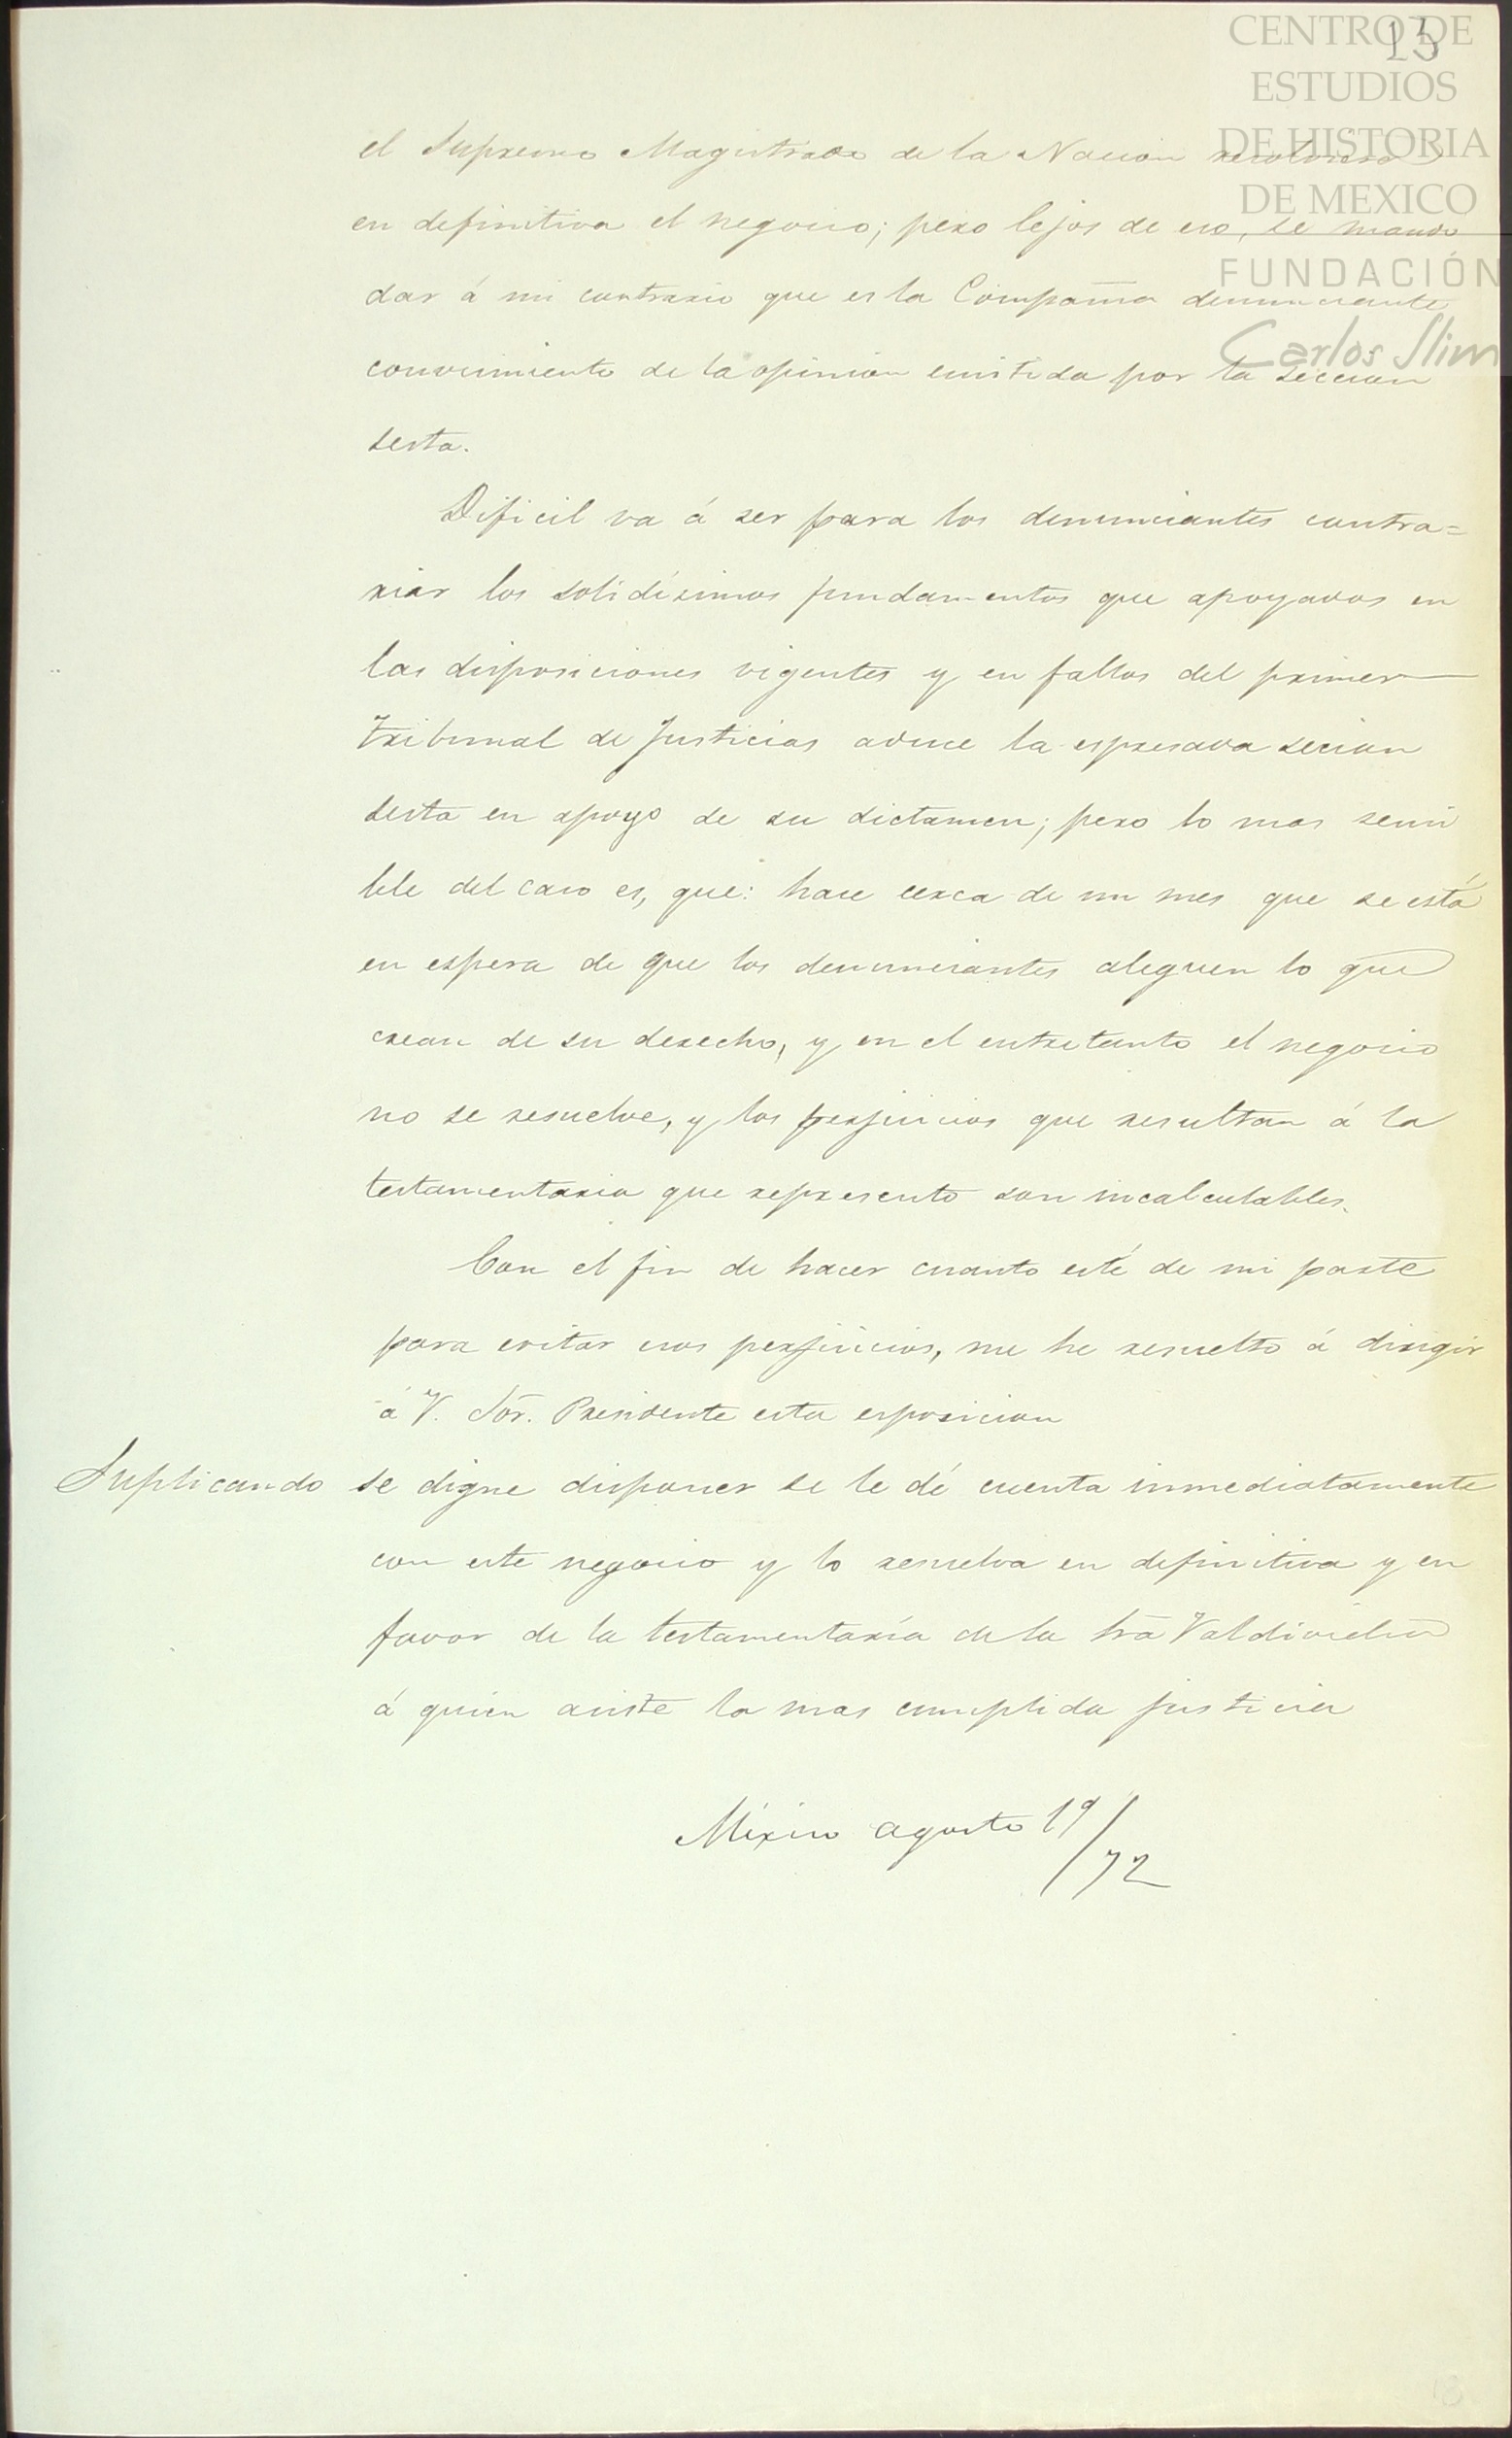 CENTRO DE
ESTUDIOS
DE HISTORIA
DE MEXICO
FUNDACIÓN
Carlos Slim
13
el Supremo Magistrado de la Nacion resolviera
en definitiva el negocio; pero lejos de eso, se mandó
dar á mi contrario que es la Compañia denunciante
conocimiento de la opinion emitida por la seccion
sesta.
Dificil va á ser para los denunciantes contra=
riar los solidísimos fundamentos que apoyados en
las disposiciones vigentes y en fallos del primer
tribunal de Justicias aduce la espresada seccion
sesta en apoyo de su dictamen; pero lo mas sensi
ble del caso es, que: hace cerca de un mes que se está
en espera de que los denunciantes aleguen lo que
crean de su derecho, y en el entretanto el negocio
no se resuelve, y los perjuicios que resultan á la
testamentaria que represento son incalculables.
Con el fin de hacer cuanto esté de mi parte
para evitar esos perjuicios, me he resuelto á dirigir
á V. Sor. Presidente esta esposicion
Suplicando se digne disponer se le dé cuenta inmediatamente
con este negocio y lo resuelva en definitiva y en
favor de la testamentaría de la Sra Valdivielso
á quien asiste la mas cumplida justicia
México agosto 19/72